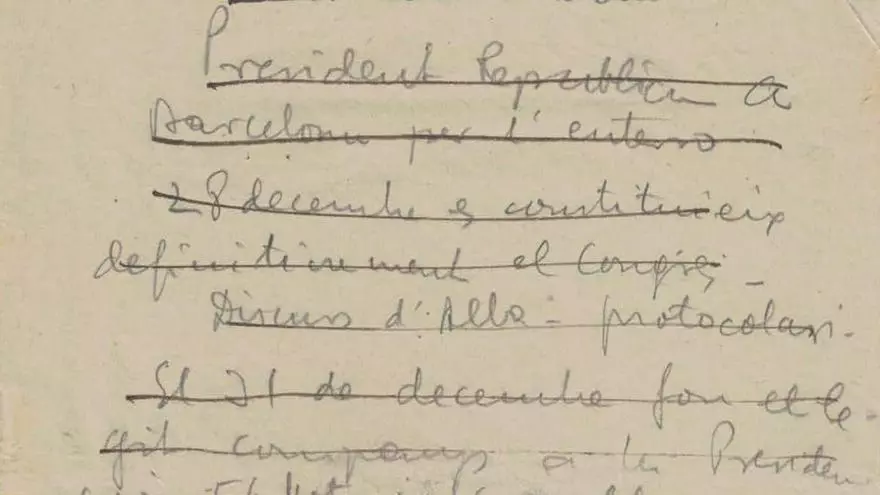 President Republica a
Barcelona per l'enterro
28 decembre es constitueix
definitivement el Congrés -
Discurs d'Alba - protocolari.
El 31 de decembre fou ele-
git Companys a la Presiden